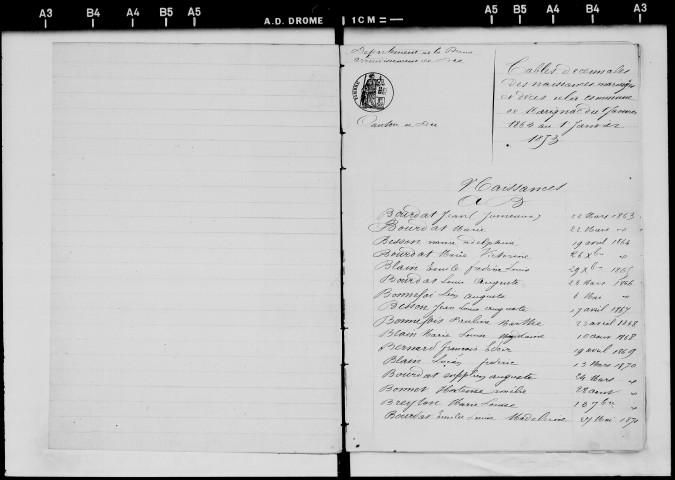 A3 B4 A4 B5 A5
A.D. DROME
1 CM =
A5 B5 A4 B4 A3
Département de la Drome
arrondissement de Die
Canton de Die
Tables décennales
des naissances mariages
et décès de la commune
de Marignac du 1 Janvier
1863 au 1 Janvier
1873
Naissances
A B
Bourdat Jean (jumeaux) 22 Mars 1863
Bourdat Marie 22 Mars "
Besson 19 avril 1864
Bourdat Marie Victorine 26 Xbre "
Blain Emile fréderic Louis 29 Xbre 1865
Bourdat Louis auguste 28 Mars 1866
Bonnefoi auguste 6 Mai "
Besson Jean Louis auguste 17 avril 1867
Bonnefois Pauline Marthe 1868
Blain Marie Louise 10 aout 1868
Bernard francois 19 avril 1869
Blain Lucien fréderic 13 Mars 1870
Bourdat auguste 24 Mars "
Bonnet Hortense emilie 28 aout "
Breyton Marie Louise 13 7bre "
Bourdat Emilie Louise Madeleine 27 Mai 1871